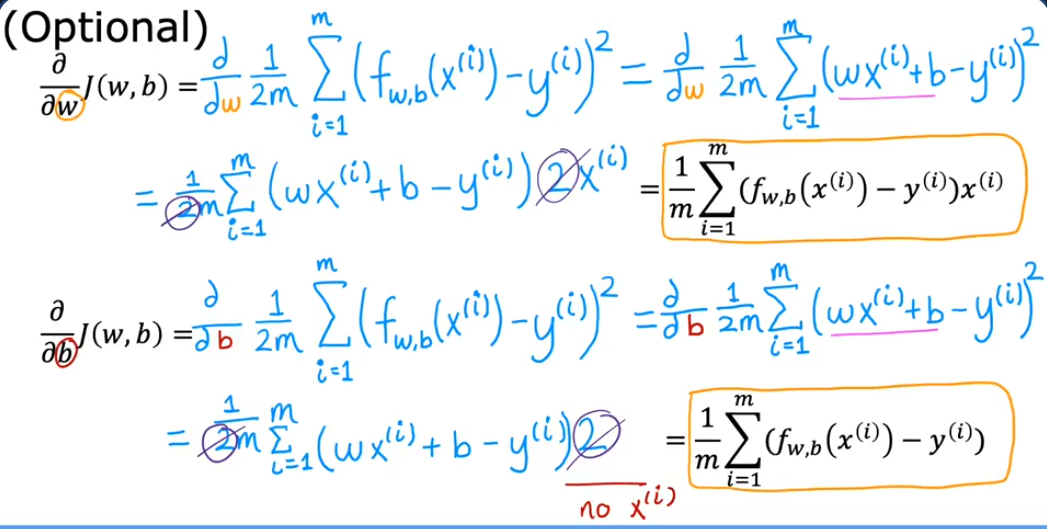 (Optional)
∂/∂w J(w, b) = d/dw 1/2m Σ_{i=1}^{m} (f_{w,b}(x^{(i)}) − y^{(i)})² = d/dw 1/2m Σ_{i=1}^{m} (wx^{(i)} + b − y^{(i)})²
= 1/2m Σ_{i=1}^{m} (wx^{(i)} + b − y^{(i)}) 2x^{(i)} = 1/m Σ_{i=1}^{m} (f_{w,b}(x^{(i)}) − y^{(i)})x^{(i)}
∂/∂b J(w, b) = ∂/∂b 1/2m Σ_{i=1}^{m} (f_{w,b}(x^{(i)}) − y^{(i)})² = ∂/∂b 1/2m Σ_{i=1}^{m} (wx^{(i)} + b − y^{(i)})²
= 1/2m Σ_{i=1}^{m} (wx^{(i)} + b − y^{(i)}) 2 = 1/m Σ_{i=1}^{m} (f_{w,b}(x^{(i)}) − y^{(i)})
no x^{(i)}